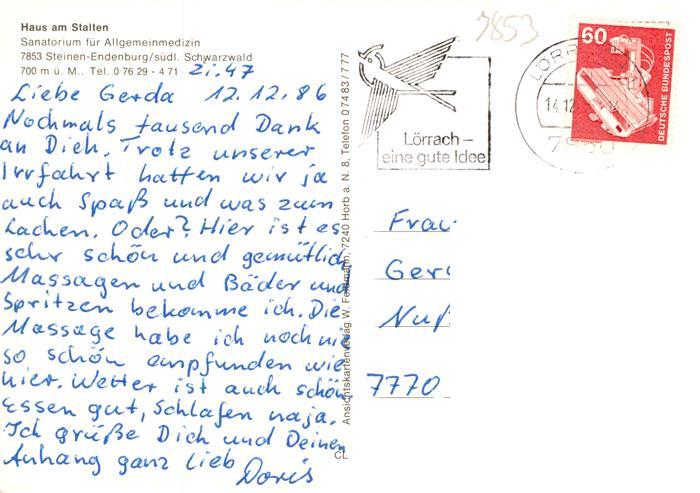 Haus am Stalten
Sanatorium für Allgemeinmedizin
7853 Steinen-Endenburg/südl. Schwarzwald
700 m ü. M., Tel. 0 76 29 - 4 71 Zi. 47
Liebe Gerda 12.12.86
Nochmals tausend Dank
an Dich. Trotz unserer
Irrfahrt hatten wir ja
auch Spaß und was zum
Lachen. Oder? Hier ist es
sehr schön und gemütlich
Massagen und Bäder und
Spritzen bekomme ich. Die
Massage habe ich noch nie
so schön empfunden wie
hier. Wetter ist auch schön
Essen gut, Schlafen naja.
Ich grüße Dich und Deinen
Anhang ganz lieb Doris
Ansichtskartenverlag W. Feldmann, 7240 Horb a. N. 8, Telefon 07483/777
CL
7853
Lörrach –
eine gute Idee
LÖRR
14.12
60
DEUTSCHE BUNDESPOST
Frau
Ger
Nuß
7770